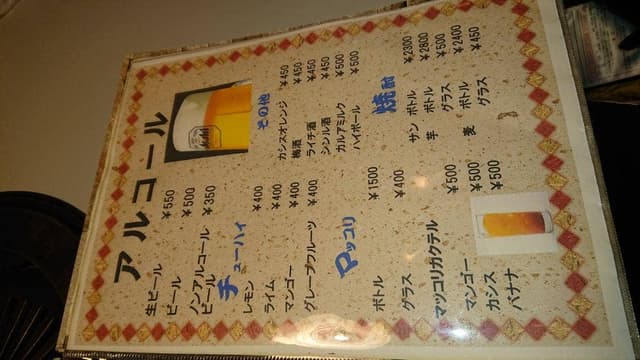 アルコール
生ビール ¥550
ビール ¥500
ノンアルコール
ビール ¥350
チューハイ
レモン ¥400
ライム ¥400
マンゴー ¥400
グレープフルーツ ¥400
マッコリ
ボトル ¥1500
グラス ¥400
マッコリカクテル
マンゴー ¥500
カシス ¥500
バナナ ¥500
Asahi
その他
カシスオレンジ ¥450
梅酒 ¥450
ライチ酒 ¥450
シンル酒 ¥450
カルアミルク ¥500
ハイボール ¥500
焼酎
サン ボトル ¥2300
芋 ボトル ¥2800
グラス ¥500
麦 ボトル ¥2400
グラス ¥450